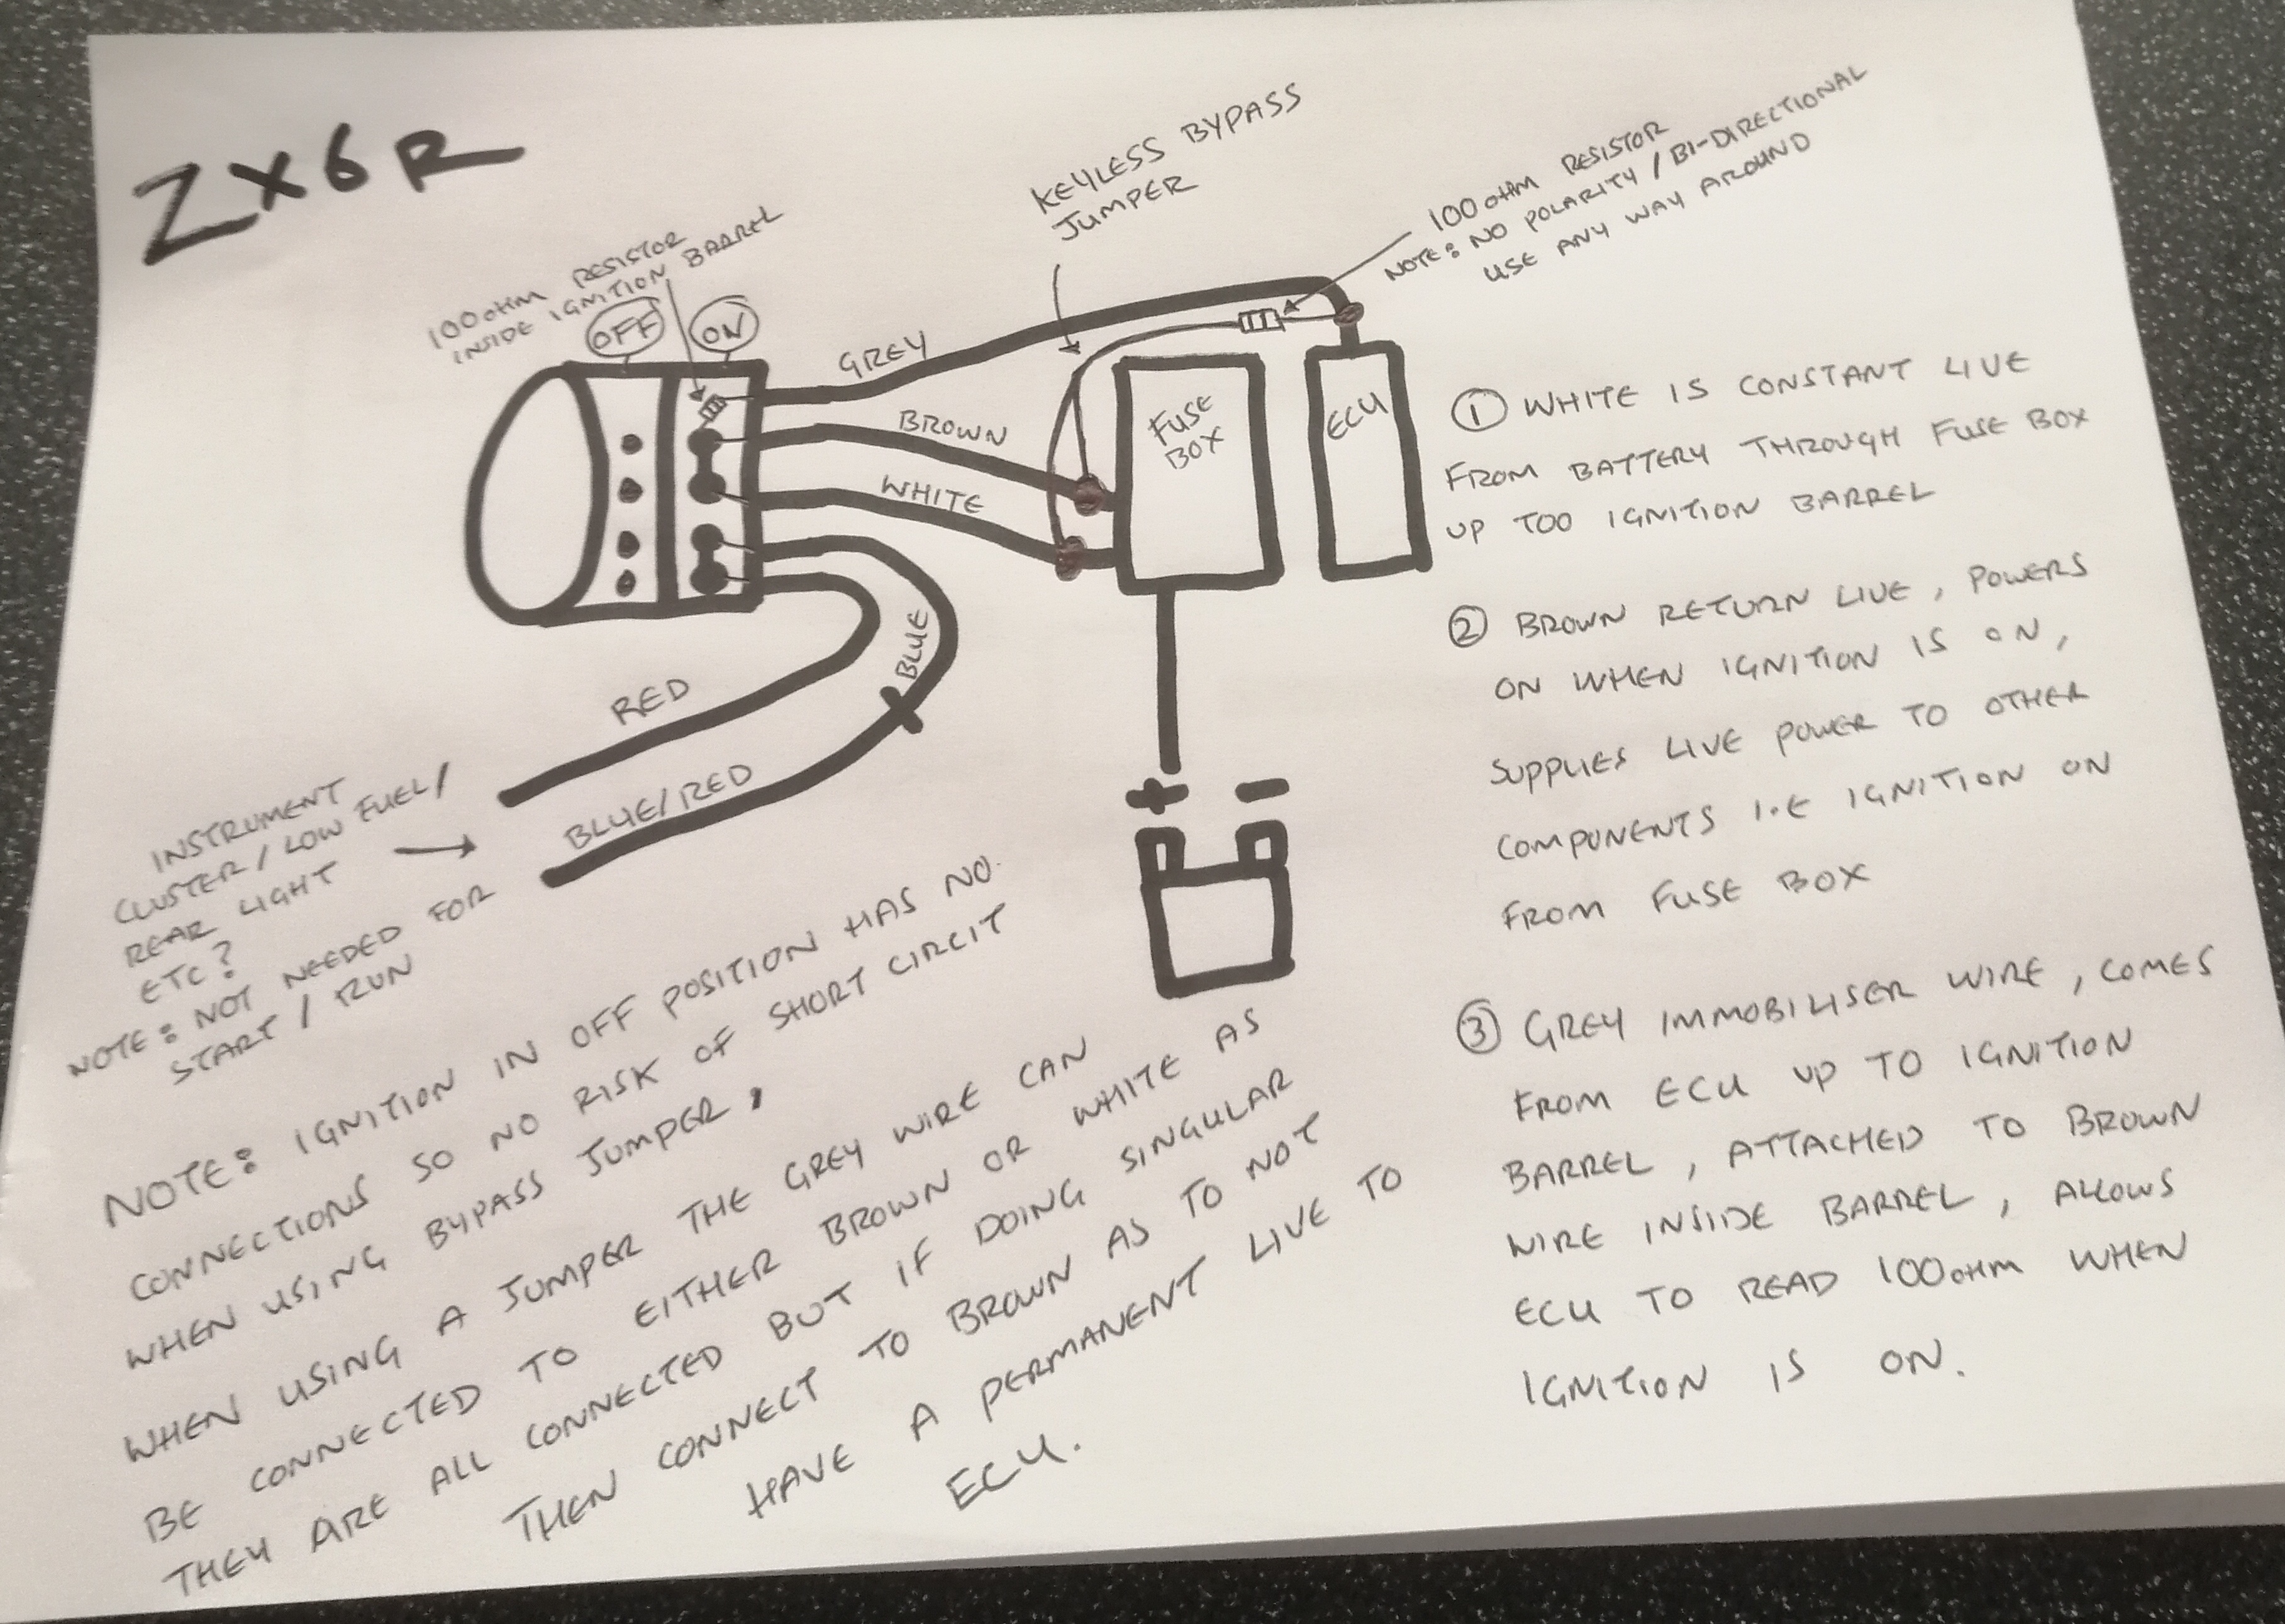 ZX6R
100 OHM RESISTOR
INSIDE IGNITION BARREL
OFF
ON
KEYLESS BYPASS
JUMPER
100 OHM RESISTOR
NOTE: NO POLARITY / BI-DIRECTIONAL
USE ANY WAY AROUND
GREY
BROWN
WHITE
FUSE
BOX
ECU
BLUE
RED
BLUE/RED
+ -
INSTRUMENT
CLUSTER / LOW FUEL /
REAR LIGHT
ETC?
NOTE: NOT NEEDED FOR
START / RUN
① WHITE IS CONSTANT LIVE
FROM BATTERY THROUGH FUSE BOX
UP TOO IGNITION BARREL
② BROWN RETURN LIVE, POWERS
ON WHEN IGNITION IS ON,
SUPPLIES LIVE POWER TO OTHER
COMPONENTS I.E IGNITION ON
FROM FUSE BOX
③ GREY IMMOBILISER WIRE, COMES
FROM ECU UP TO IGNITION
BARREL, ATTACHED TO BROWN
WIRE INSIDE BARREL, ALLOWS
ECU TO READ 100 OHM WHEN
IGNITION IS ON.
NOTE: IGNITION IN OFF POSITION HAS NO
CONNECTIONS SO NO RISK OF SHORT CIRCIT
WHEN USING BYPASS JUMPER,
WHEN USING A JUMPER THE GREY WIRE CAN
BE CONNECTED TO EITHER BROWN OR WHITE AS
THEY ARE ALL CONNECTED BUT IF DOING SINGULAR
THEN CONNECT TO BROWN AS TO NOT
HAVE A PERMANENT LIVE TO
ECU.